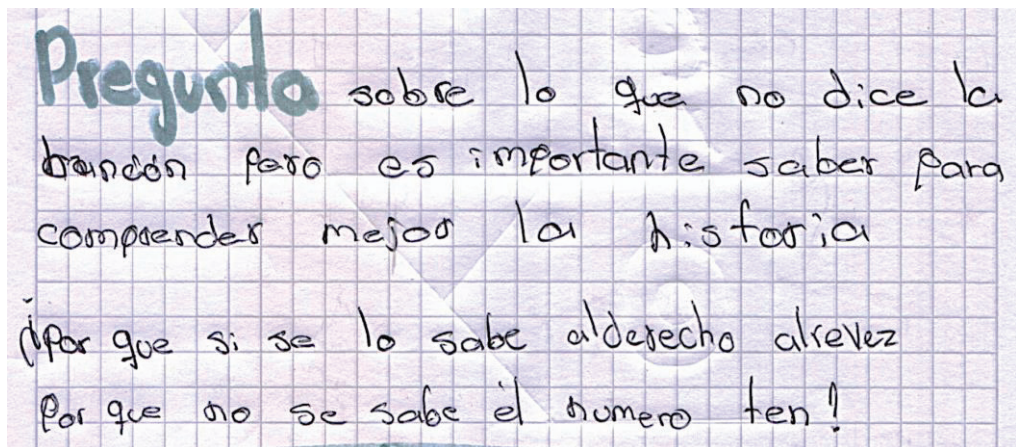 Pregunta sobre lo que no dice la
canción pero es importante saber para
comprender mejor la historia
¿Por que si se lo sabe alderecho alrevez
Por que no se sabe el numero ten!